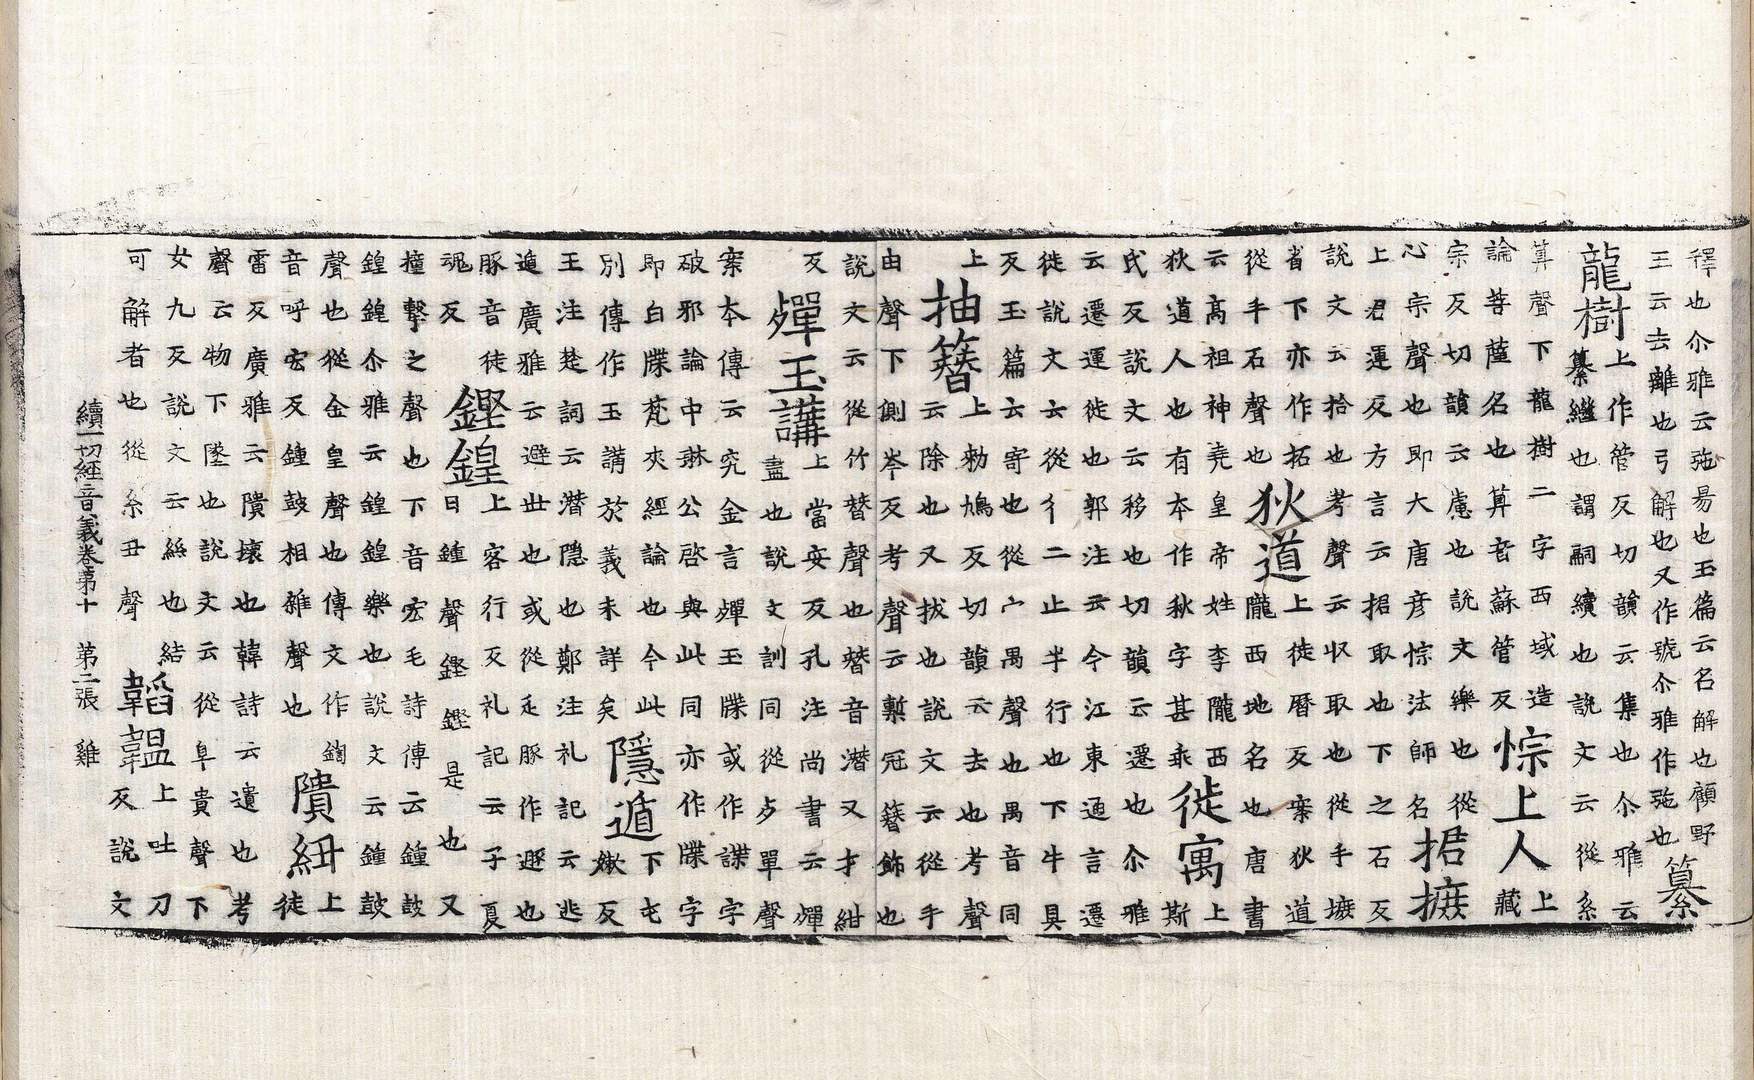 釋也尒雅云㢮易也玉篇云名解也顧野
王云去離也弓解也又作號尒雅作㢮也
纂
龍樹
上作管反切韻云集也尒雅云
纂繼也謂嗣續也說文云從糸
筭聲下龍樹二字西域造
論菩薩名也筭音蘇管反
悰上人
上
藏
宗反切韻云慮也說文樂也從
心宗聲也即大唐彥悰法師名
捃摭
上君運反方言云捃取也下之石反
說文云拾也考聲云収取也從手摭
省下亦作拓
從手石聲也
狄道
上徒曆反案狄道
隴西地名也唐書
云高祖神堯皇帝姓李隴西
狄道人也有本作秋字甚乖
徙寓
上
斯
氏反說文云移也切韻云遷也尒雅
云遷運徙也郭注云今江東通言遷
徙說文云從彳二止半行也下牛具
反玉篇云寄也從宀禺聲也禺音同
上
抽簪
上勑鳩反切韻云去也考聲
云除也又拔也說文云從手
由聲下側岑反考聲云蔪冠簪飾也
說文云從竹朁聲也朁音潛又才紺
反
殫玉講
上當安反孔注尚書云殫
盡也說文訓同從歹單聲
案本傳云究金言殫玉牒或作諜字
破邪論中琳公啓與此同亦作牒字
即白牒梵夾經論也今此
別傳作玉講於義未詳矣
隱遁
下屯
反
王注楚詞云潛隱也鄭注礼記云逃
遁廣雅云避世也或從辵豚作遯也
豚音徒
魂反
鏗鍠
上客行反礼記云子夏
曰鍾聲鏗鏗是也又
撞擊之聲也下音宏毛詩傳云鍾鼓
鍠鍠尒雅云鍠鍠樂也說文云鍾鼓
聲也從金皇聲也傳文作鍧
音呼宏反鍾鼓相雜聲也
隤紐
上
徒
雷反廣雅云隤壞也韓詩云遺也考
聲云物下墜也說文云從𨸏貴聲下
女九反說文云絲也結
可解者也從糸丑聲
韜韞
上吐刀
反說文
續一切經音義卷第十　第二張　雞